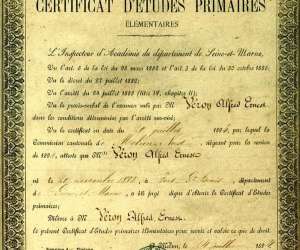 CERTIFICAT D'ÉTUDES PRIMAIRES
ÉLÉMENTAIRES
L'Inspecteur d'Académie du département de Seine-et-Marne,
Vu l'art. 6 de la loi du 28 mars 1882 et l'art. de la loi du 30 octobre 1886;
Vu le décret du 27 juillet 1882;
Vu l'arrêté du 23 juillet 1882 (titre IV, chapitre II);
Vu le procès-verbal de l'examen subi par M Véron Alfred Ernest
dans les conditions déterminées par l'arrêté susvisé;
Vu le certificat en date du juillet 189, par lequel la
Commission cantonale de siégeant pour la session
de 189, atteste que M Véron Alfred Ernest
né le novembre à département
de a été jugé digne d'obtenir le Certificat d'Études
primaires;
Délivre à M Véron Alfred Ernest
le présent Certificat d'Études primaires élémentaires pour servir et valoir ce que de droit.
Melun, le juillet 189